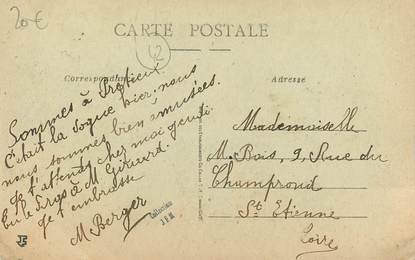 20€
CARTE POSTALE
62
Correspondance
Adresse
Sommes à
C'était la vogue hier, nous
nous sommes bien amusées.
Je t'attends chez moi jeudi
M. Girard.
Je t'embrasse
M Berger
Collection
JPM
Mademoiselle
M. Bois, 9, Rue du
Champrond
St Etienne
Loire